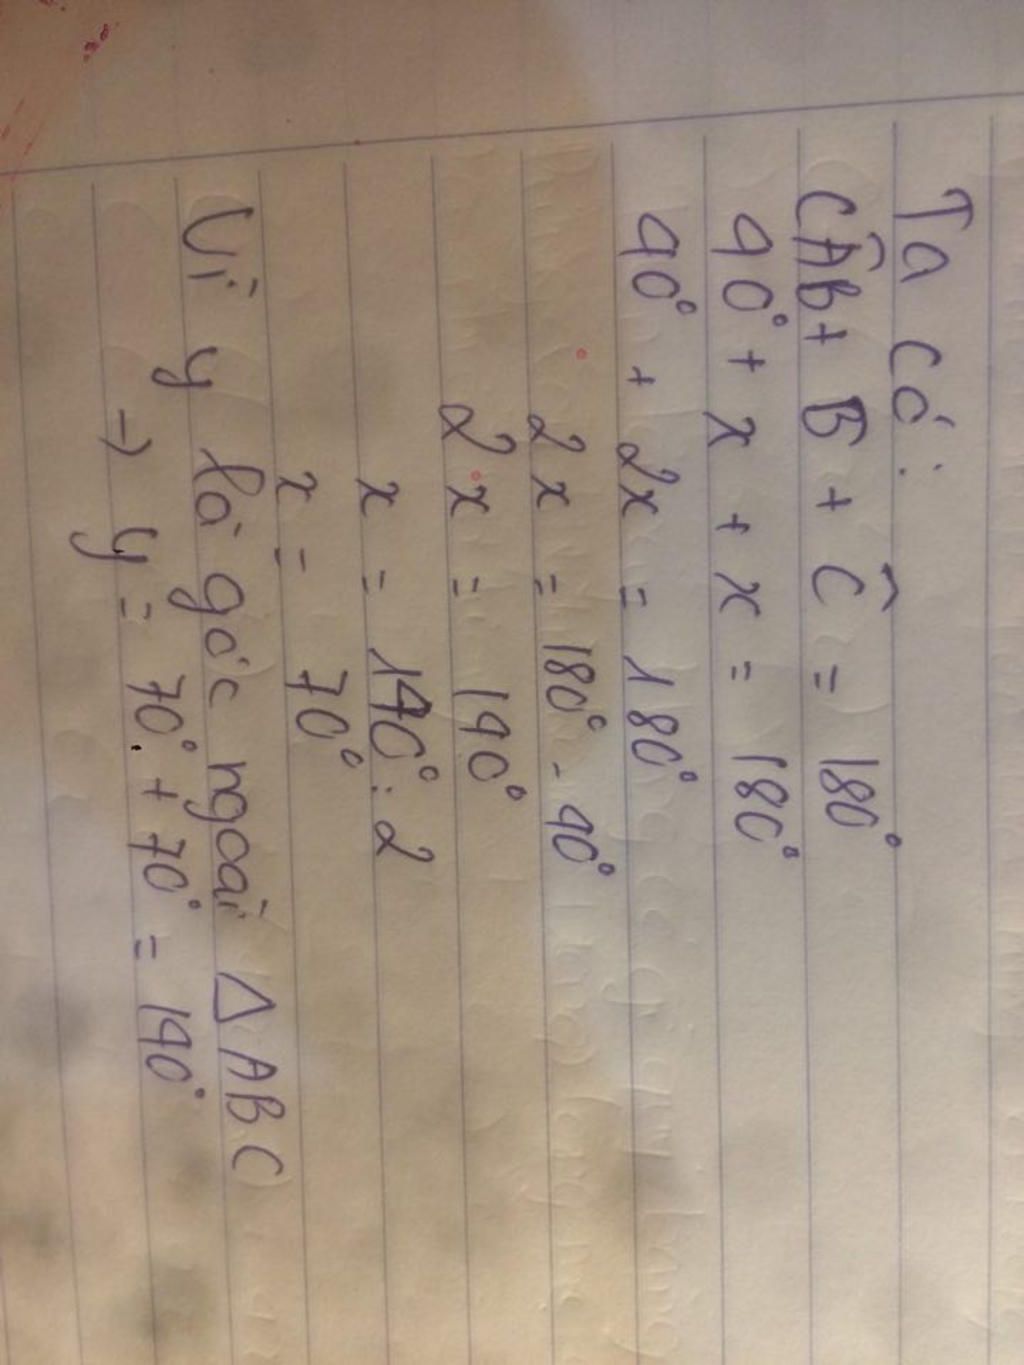 Ta có:
CÂB + B + Ĉ = 180°
40° + x + x = 180°
40° + 2x = 180°
2x = 180° - 40°
2x = 140°
x = 140° : 2
x = 70°
Vì y là góc ngoài Δ ABC
→ y = 70° + 70° = 140°